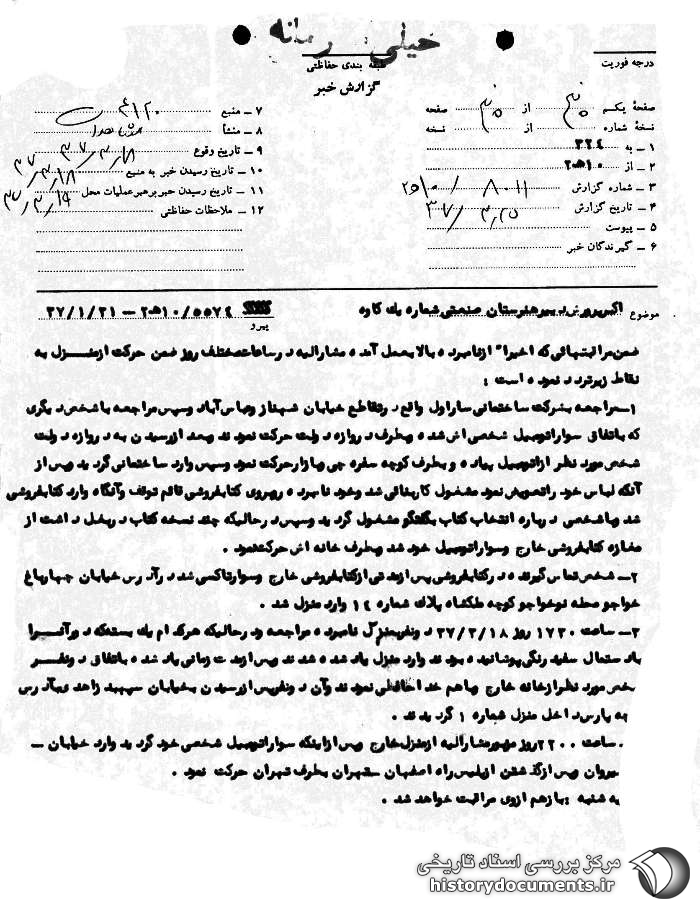 خیلی محرمانه
طبقه بندی حفاظتی
درجه فوریت
گزارش خبر
صفحهٔ یکم از صفحه
نسخهٔ شماره از نسخه
۱ – به ۳۲۴
۲ – از ۱۰ه۲
۳ – شماره گزارش
۴ – تاریخ گزارش
۵ – پیوست
۶ – گیرندگان خبر
۷ – منبع
۸ – منشأ
۹ – تاریخ وقوع
۱۰ – تاریخ رسیدن خبر به منبع
۱۱ – تاریخ رسیدن خبر برهبر عملیات محل
۱۲ – ملاحظات حفاظتی
موضوع اکبر پرورش دبیر هنرستان صنعتی شماره یک کاوه
۵۵۷۴/۱۰ه۲ – ۳۷/۱/۳۱
پیرو
ضمن مراقبتهائی که اخیرا" از نامبرده بالا بعمل آمده مشارالیه در ساعات مختلف روز ضمن حرکت از منزل به
نقاط زیر تردد نموده است :
۱– مراجعه بشرکت ساختمانی ساراول واقع در تقاطع خیابان شهناز و عباس آباد و سپس مراجعه با شخص دیگری
که باتفاق سوار اتومبیل شخصی اش شده و بطرف دروازه دولت حرکت نمودند و بعد از رسیدن به دروازه دولت
شخص مورد نظر از اتومبیل پیاده و بطرف کوچه سفره چی و بازار حرکت نمود و سپس وارد ساختمانی گردید و پس از
آنکه لباس خود را تعویض نمود مشغول کار بنائی شد و خود نامبرده روبروی کتابفروشی قائم توقف و آنگاه وارد کتابفروشی
شد و با شخصی درباره انتخاب کتاب بگفتگو مشغول گردید و سپس در حالیکه چند نسخه کتاب در بغل داشت از
مغازه کتابفروشی خارج و سوار اتومبیل خود شد و بطرف خانه اش حرکت نمود .
۲– شخص تماس گیرنده در کتابفروشی پس از مدتی از کتابفروشی خارج و سوار تاکسی شد در آدرس خیابان چهارباغ
خواجو محله نو خواجو کوچه ملکشاه پلاک شماره ۱۴ وارد منزل شد .
۳– ساعت ۱۷۳۰ روز ۳۷/۳/۱۸ دو نفر بمنزل نامبرده مراجعه و در حالیکه هر کدام یک بسته که در آنرا
با دستمال سفید رنگی پوشانیده بودند وارد منزل یاد شده شدند و پس از مدت زمانی یاد شده باتفاق دو نفر
شخص مورد نظر از خانه خارج و با هم خداحافظی نمودند و آن دو نفر پس از رسیدن بخیابان سپهبد زاهدی بآدرس
به پارس داخل منزل شماره ۱ گردیدند .
. ساعت ۲۲۰۰ روز مزبور مشارالیه از منزل خارج و پس از اینکه سوار اتومبیل شخصی خود گردید وارد خیابان –
شیروان و پس از گذشتن از پلیس راه اصفهان – تهران بطرف تهران حرکت نمود .
یه شنبه : باز هم از وی مراقبت خواهد شد .
مرکز بررسی اسناد تاریخی
historydocuments.ir